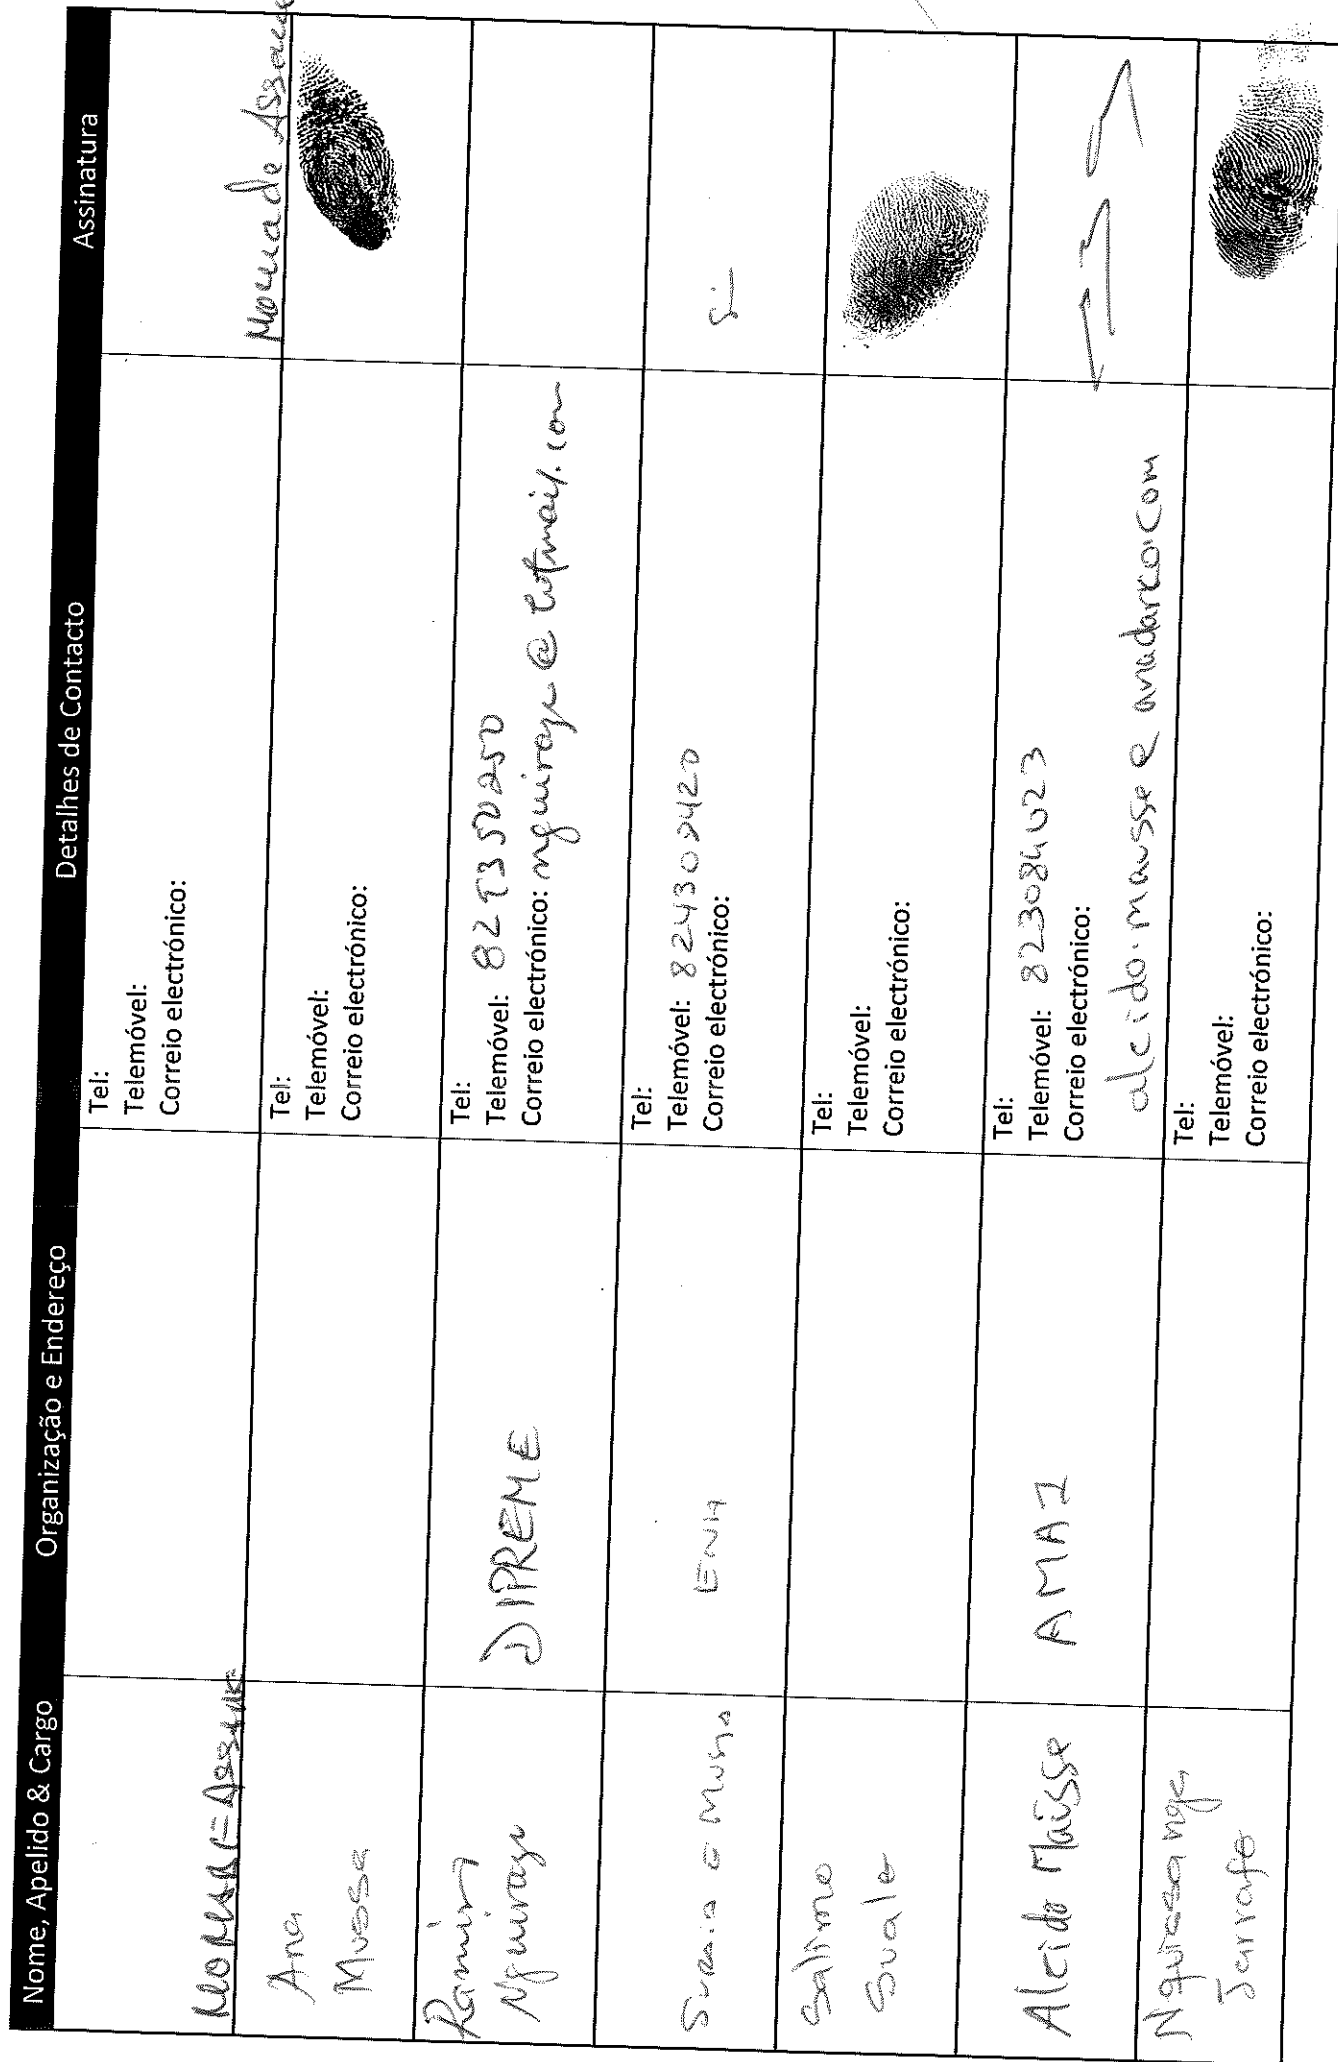 Nome, Apelido & Cargo Organização e Endereço Detalhes de Contacto Assinatura
Tel:
Telemóvel:
Correio electrónico:
Ana
Mussa
Tel:
Telemóvel:
Correio electrónico:
Ramiro
Nguiraze
DIPREME
Tel:
Telemóvel:
Correio electrónico:
ENH
Tel:
Telemóvel: 824302420
Correio electrónico:
Salimo
Suale
Tel:
Telemóvel:
Correio electrónico:
Alcido Maússe
AMA1
Tel:
Telemóvel: 823084023
Correio electrónico:
alcido.mausse@anadarko.com
Jarrafo
Tel:
Telemóvel:
Correio electrónico: